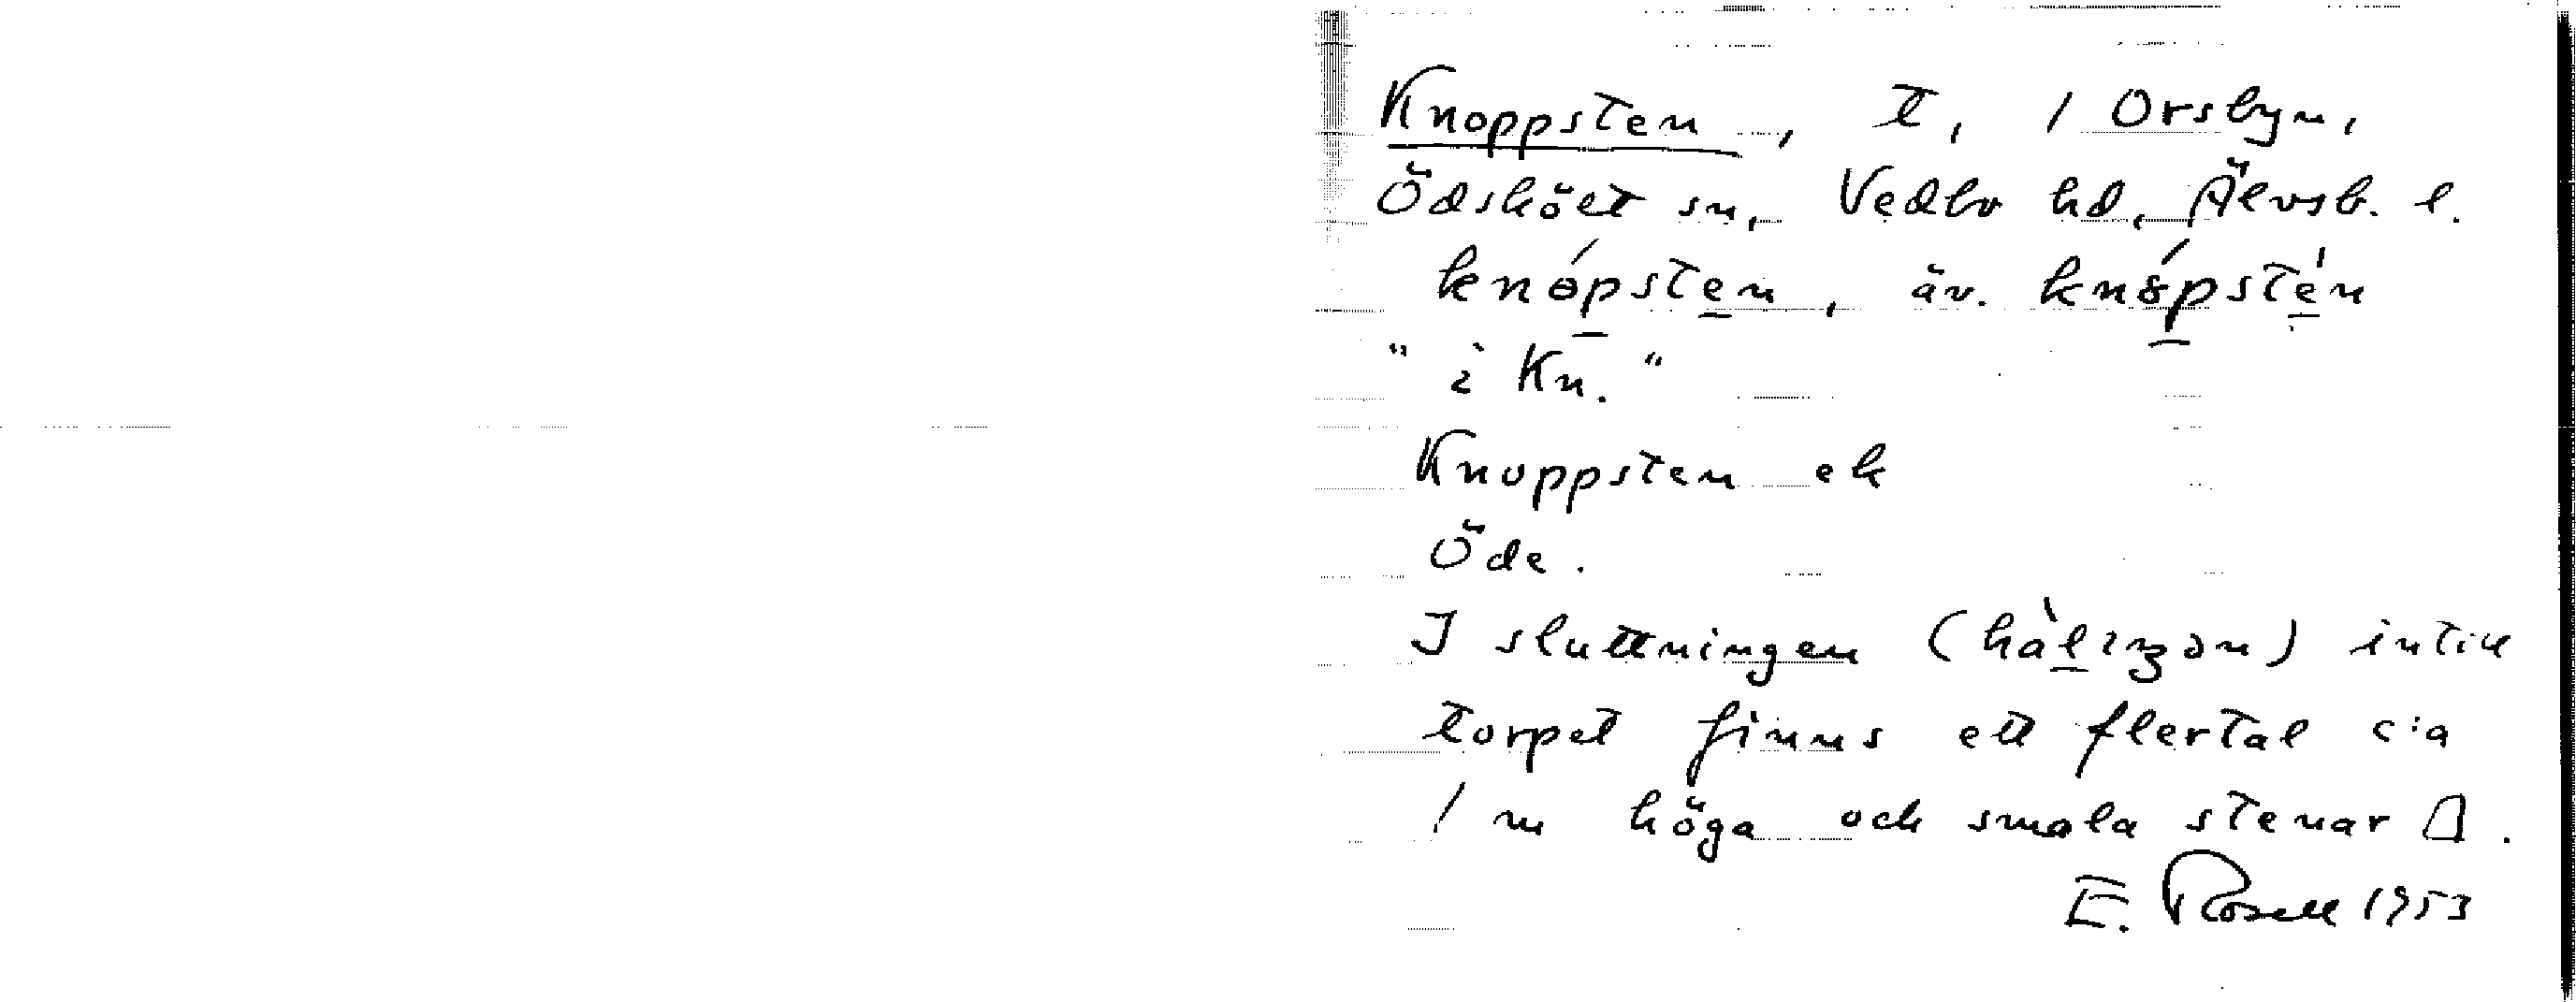 Knoppsten, t, 1 Orsbyn,
Ödskölt sn, Vedbo hd, Älvsb. l.
knópsten, äv. knópstén
"i Kn."
Knoppsten ek
Öde.
I sluttningen (hàlıŋən) intill
torpet finns ett flertal c:a
1 m höga och smala stenar.
E. Rosell 1953